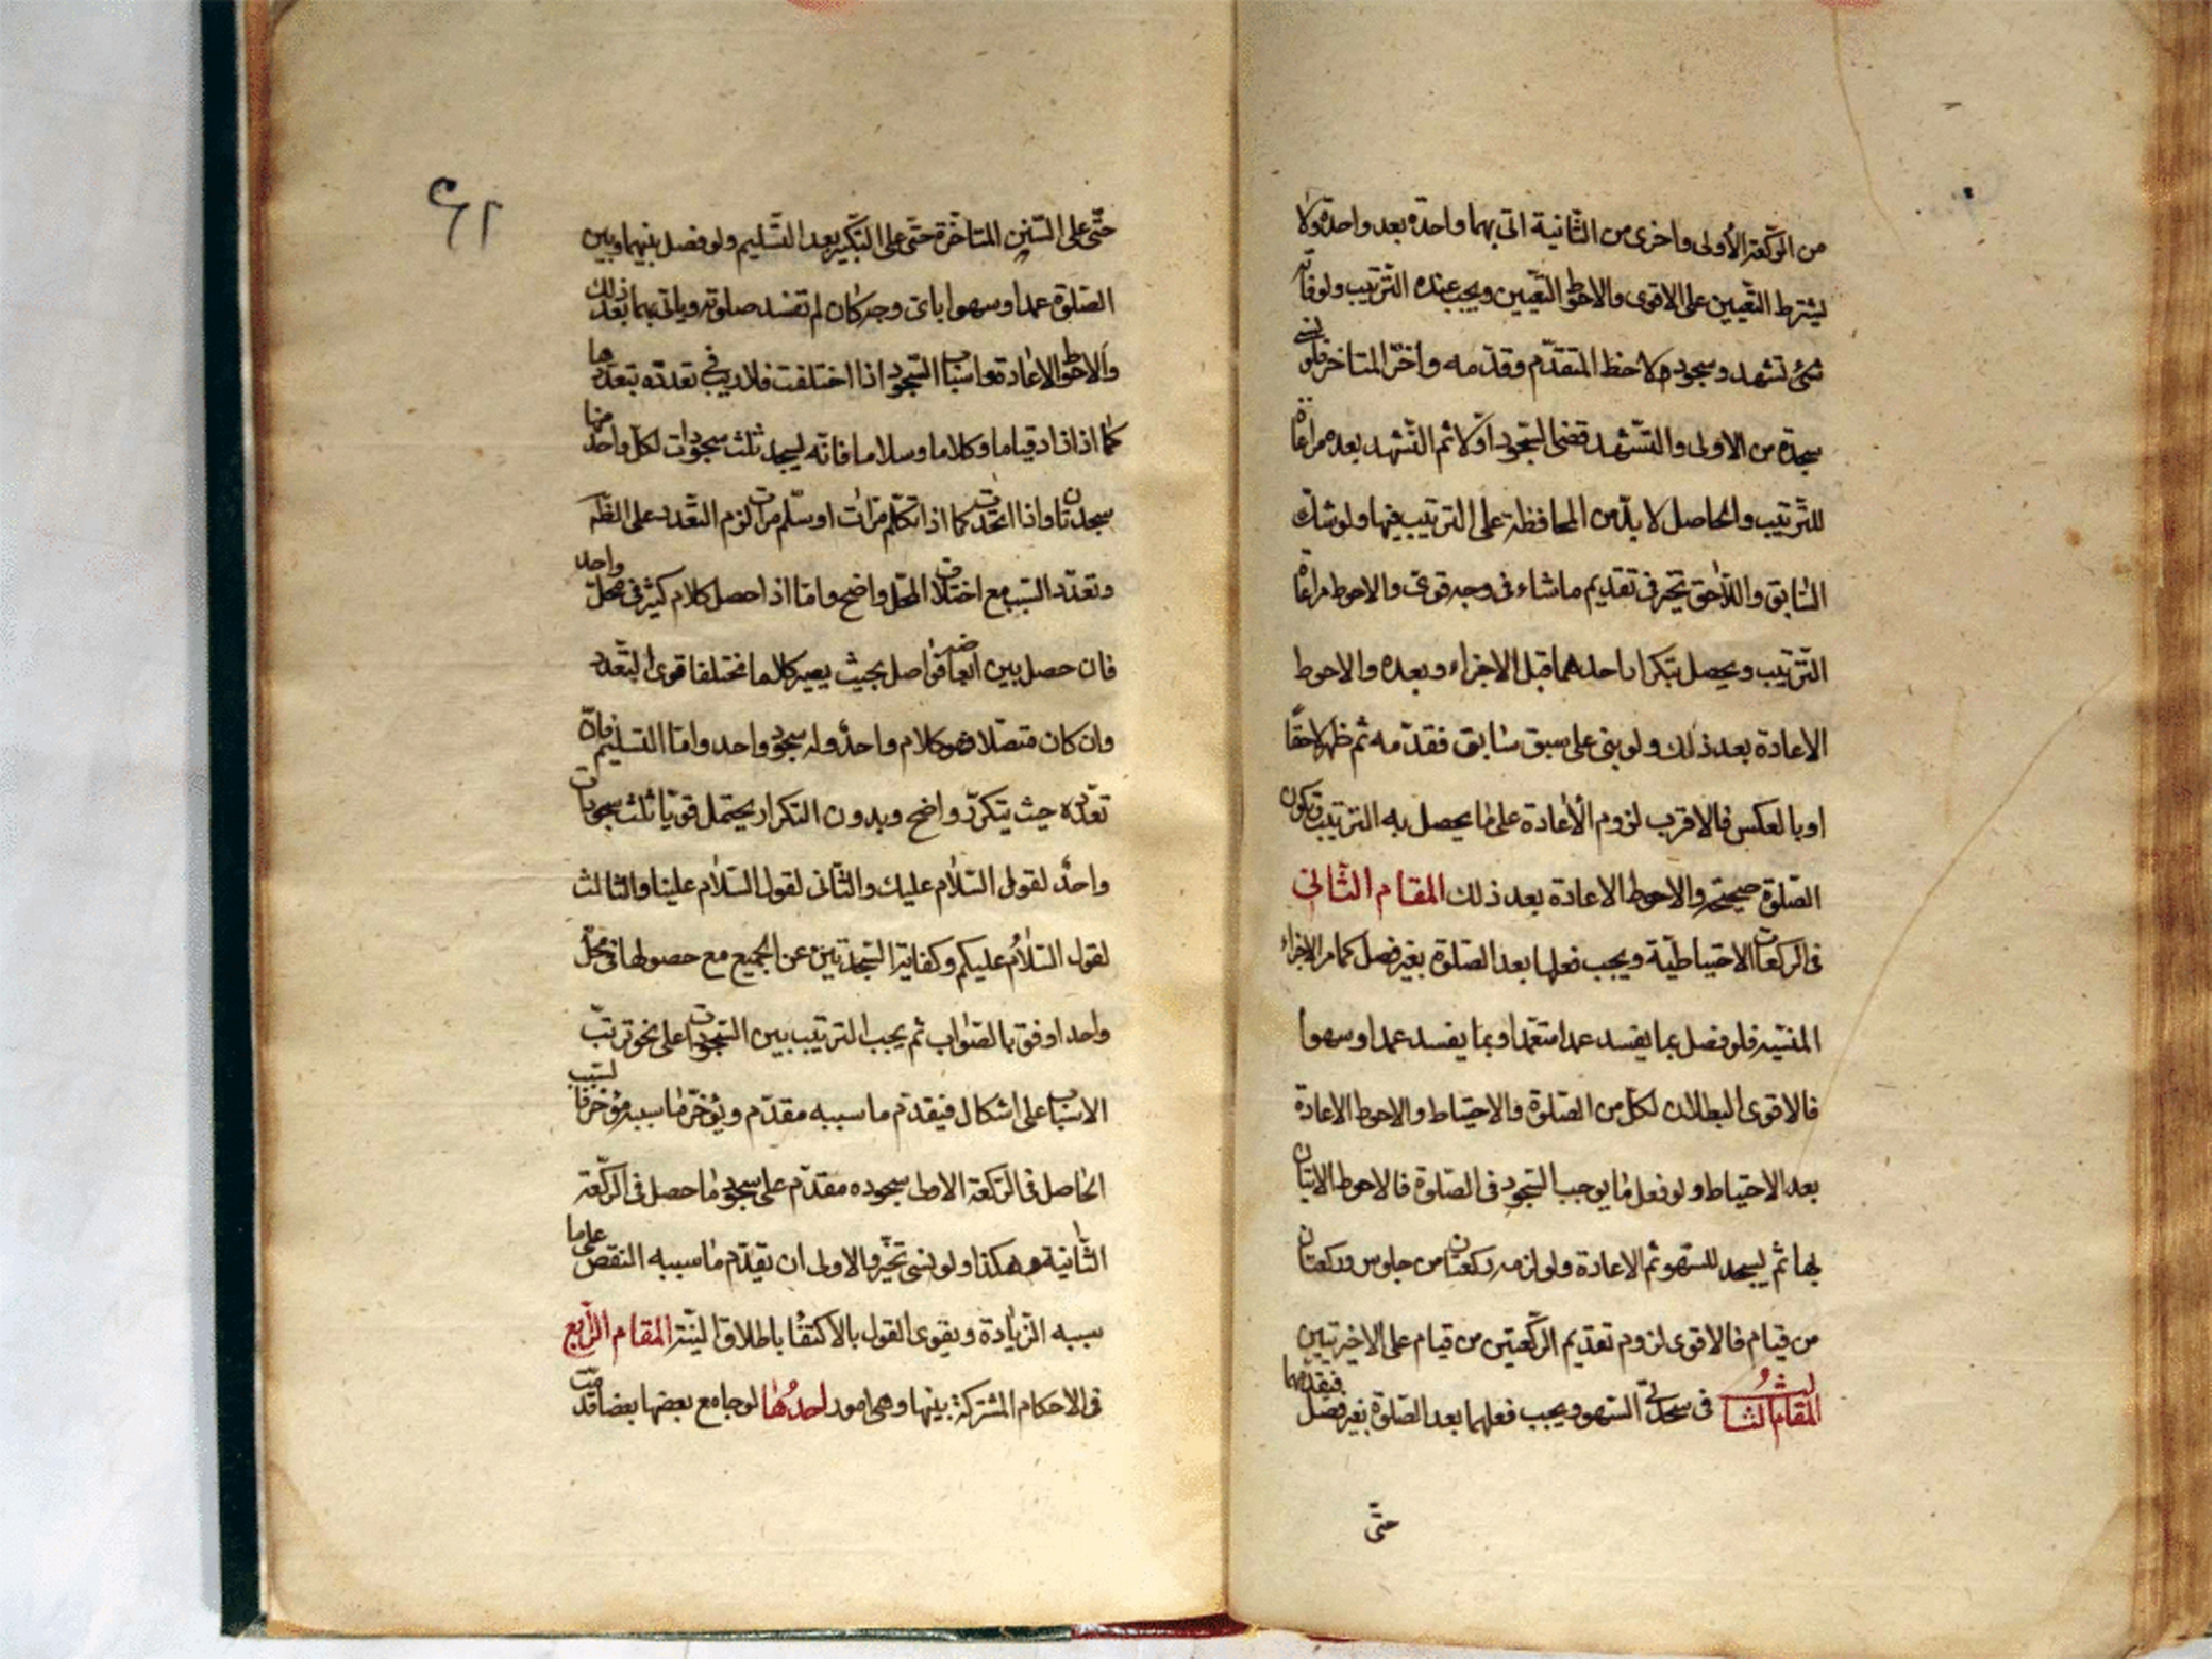 من الركعة الأولى واخرى من الثانية اتى بهما واحدة بعد واحدة ولا
يشترط التعيين على الاقوى والاحوط التعيين ويجب عنده الترتيب ولو فاته
شئ تشهد وسجود لاحظ المتقدم وقدمه واخر المتاخر فلو نسى
سجدة من الاولى والتشهد قضى السجود اولا ثم التشهد بعده مراعاة
للترتيب والحاصل لا بد من المحافظة على الترتيب فيها ولو شك
السابق واللاحق تخير فى تقديم ما شاء فى وجه قوى والاحوط مراعاة
الترتيب ويحصل بتكرار احدهما قبل الاجزاء وبعده والاحوط
الاعادة بعد ذلك ولو بنى على سبق سابق فقدمه ثم ظهر لاحقا
او بالعكس فالاقرب لزوم الأعادة على ما يحصل به الترتيب وتكون
الصلوة صحيحة والاحوط الاعادة بعد ذلك المقام الثانى
فى الركعات الاحتياطية ويجب فعلها بعد الصلوة بغير فصل كما مر الاجزاء
المنسية فلو فصل بما يفسد عمدا متعمدا وبما يفسد عمدا وسهوا
فالاقوى البطلان لكل من الصلوة والاحتياط والاحوط الاعادة
بعد الاحتياط ولو فعل ما يوجب السجود فى الصلوة فالاحوط الاتيان
بها ثم يسجد للسهو ثم الاعادة ولو لزمه ركعتان من جلوس وركعتان
من قيام فالاقوى لزوم تقديم الركعتين من قيام على الاخيرتين
المقام الثالث فى سجدتى السهو ويجب فعلهما بعد الصلوة بغير فصل فيقدمهما
حتى
٦١
حتى على السنن المتاخرة حتى على التكبير بعد التسليم ولو فصل بينهما وبين
الصلوة عمدا وسهوا باى وجه كان لم تفسد صلوته وياتى بهما بعد ذلك
والاحوط الاعادة واسباب السجود اذا اختلفت فلا ريب فى تعدده بتعددها
كما اذا زاد قياما وكلاما وسلاما فانه يسجد ثلث سجودات لكل واحد منها
سجدتان واذا اتحدت كما اذا تكلم مرات او سلم مرات لزم التعدد على الظه
وتعدد السبب مع اختلاف المحل واضح واما اذا حصل كلام كثير فى محل واحد
فان حصل بين ابعاضه فواصل بحيث يصير كلاما مختلفا قوى التعدد
وان كان متصلا فهو كلام واحد وله سجود واحد واما التسليم فان
تعدده حيث يتكرر واضح وبدون التكرار يحتمل قويا ثلث سجودات
واحد لقول السلام عليك والثانى لقول السلام علينا والثالث
لقول السلام عليكم وكفاية السجدتين عن الجميع مع حصولها فى محل
واحد اوفق بالصواب ثم يجب الترتيب بين السجودات على نحو ترتب
الاسباب على اشكال فيقدم ما سببه مقدم ويؤخر ما سببه مؤخر فالسبب
الحاصل فى الركعة الاولى سجوده مقدم على سجود ما حصل فى الركعة
الثانية وهكذا ولو نسى تخير والاولى ان يقدم ما سببه النقص على ما
سببه الزيادة ويقوى القول بالاكتفا باطلاق النية المقام الرابع
فى الاحكام المشتركة بينها وهى امور احدها لو جامع بعضها بعضا قدمت